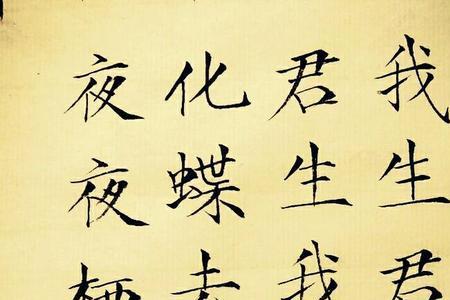 我生君
君生我
化蝶去
夜夜栖